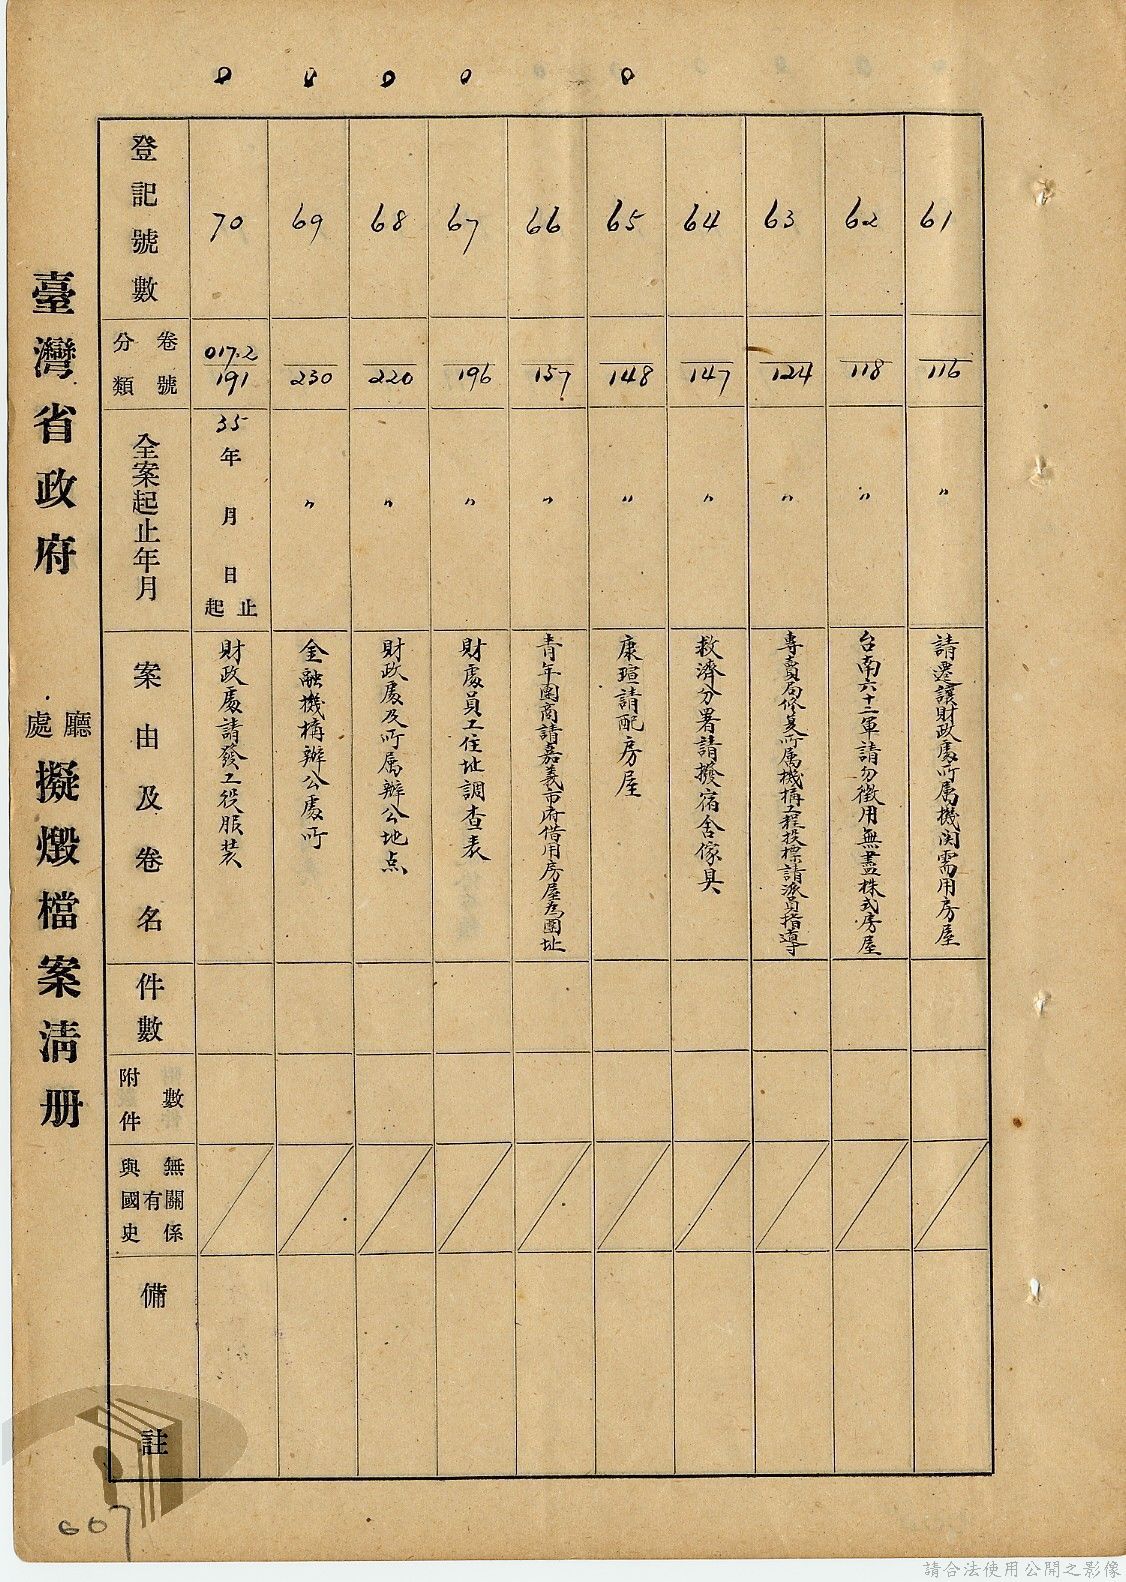 臺灣省政府 廳處擬燬檔案清册
登記號數
70
69
68
67
66
65
64
63
62
61
分類 卷號
017.2
191
230
220
196
157
148
147
124
118
116
全案起止年月
35年 月 日 起止
〃
〃
〃
〃
〃
〃
〃
〃
〃
案由及卷名
財政處請發工役服裝
金融機構辦公處所
財政處及所屬辦公地点
財處員工住址調查表
青年團商請嘉義市府借用房屋為團址
康瑄請配房屋
救濟分署請撥宿舍傢具
專賣局修复所属機構工程投標請派員指導
台南六十二軍請勿徵用無盡株式房屋
請遷讓財政處所屬機関需用房屋
件數
附件數
與國史有無關係
備註
607
請合法使用公開之影像